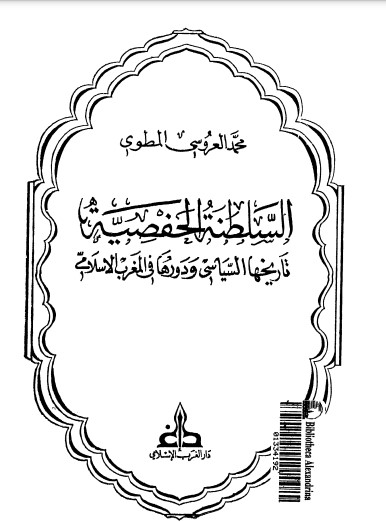 محمد العروسي المطوي
السلطنة الحفصية
تاريخها السياسي ودورها في المغرب الإسلامي
دار الغرب الإسلامي
Bibliotheca Alexandrina
01334192